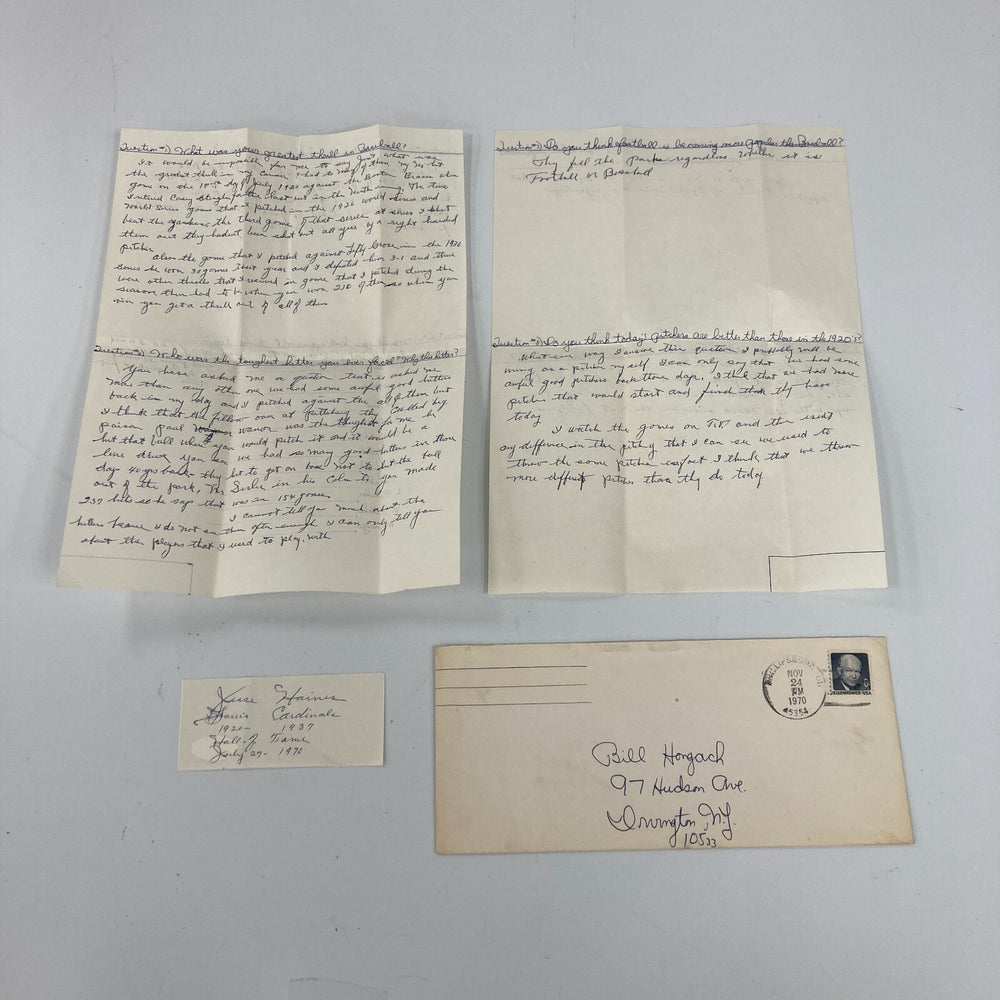 Question #1) What was your greatest thrill in Baseball?
It would be impossible for me to say just what was
the greatest thrill in my career I had to many of them my no hit
game on the 17th day of July 1924 against the Boston Braves when
I retired Casey Stengel for the last out in the ninth inning. The two
World Series games that I pitched in the 1926 world series and
beat the yankees, the third game of that series at st louis I shut
them out they hadent been shut out all year by a right handed
pitcher
also the game that I pitched against Lefty Grove in the 1930
Series he won games that year and I defeted him 3-1 and there
were other thrills that I received in game that I pitched during the
season there had to be when you won 210 of them so when you
win you get a thrill out of all of them
Question #2) Who was the toughest hitter you ever faced? Why this hitter?
You have asked me a question that is asked me
more than any other one we had some awful good hitters
back in my day and I pitched against the all of them but
I think that the fellow over at pittsburg they called big
poison paul waner was the toughest for me he
but that ball when you would pitch it and it would be a
line drive you see we had so many good hitters in those
day to get on base not to hit the ball
out of the park, Mr Sisler in his Colm to you made
257 hits so he says that was in 154 games.
I cannot tell you much about the
hitters because I do not see them often enough I can only tell you
about the players that I used to play with
Question #3) Do you think football is becoming more popular than Baseball?
They fill the Parks regardless whither it is
Football or Baseball
Question #4) Do you think today's pitchers are better than those in the 1920's?
What ever way I answer this question I probably will be
wrong as a pitcher my self I can only say that we had some
awful good pitchers back those days, I think that we had more
pitchers that would start and finish than they have
today
I watch the games on T.V. and the isent
any difference in the pitching that I can see we used to
throw the same pitches infact I think that we threw
more difficult pitches than they do today.
Jesse Haines
St Louis Cardinals
1920 - 1937
Hall of Fame
July 27 - 1970
PHILLIPSBURG, OH
NOV
24
PM
1970
45354
6c
EISENHOWER·USA
Bill Hongach
97 Hudson Ave.
Irvington, N.Y.
10533